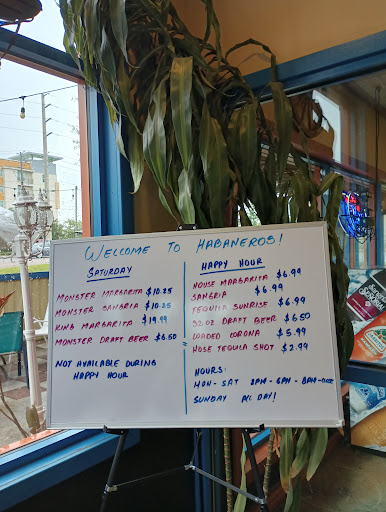 WELCOME TO HABANEROS!
SATURDAY
MONSTER MARGARITA $10.25
MONSTER SANGRIA $10.25
KING MARGARITA $19.99
MONSTER DRAFT BEER $6.50
NOT AVAILABLE DURING
HAPPY HOUR
HAPPY HOUR
HOUSE MARGARITA $6.99
SANGRIA $6.99
TEQUILA SUNRISE $6.99
32OZ DRAFT BEER $6.50
LOADED CORONA $5.99
HOSE TEQUILA SHOT $2.99
HOURS:
MON - SAT 2PM - 6PM - 8PM - CLOSE
SUNDAY ALL DAY!